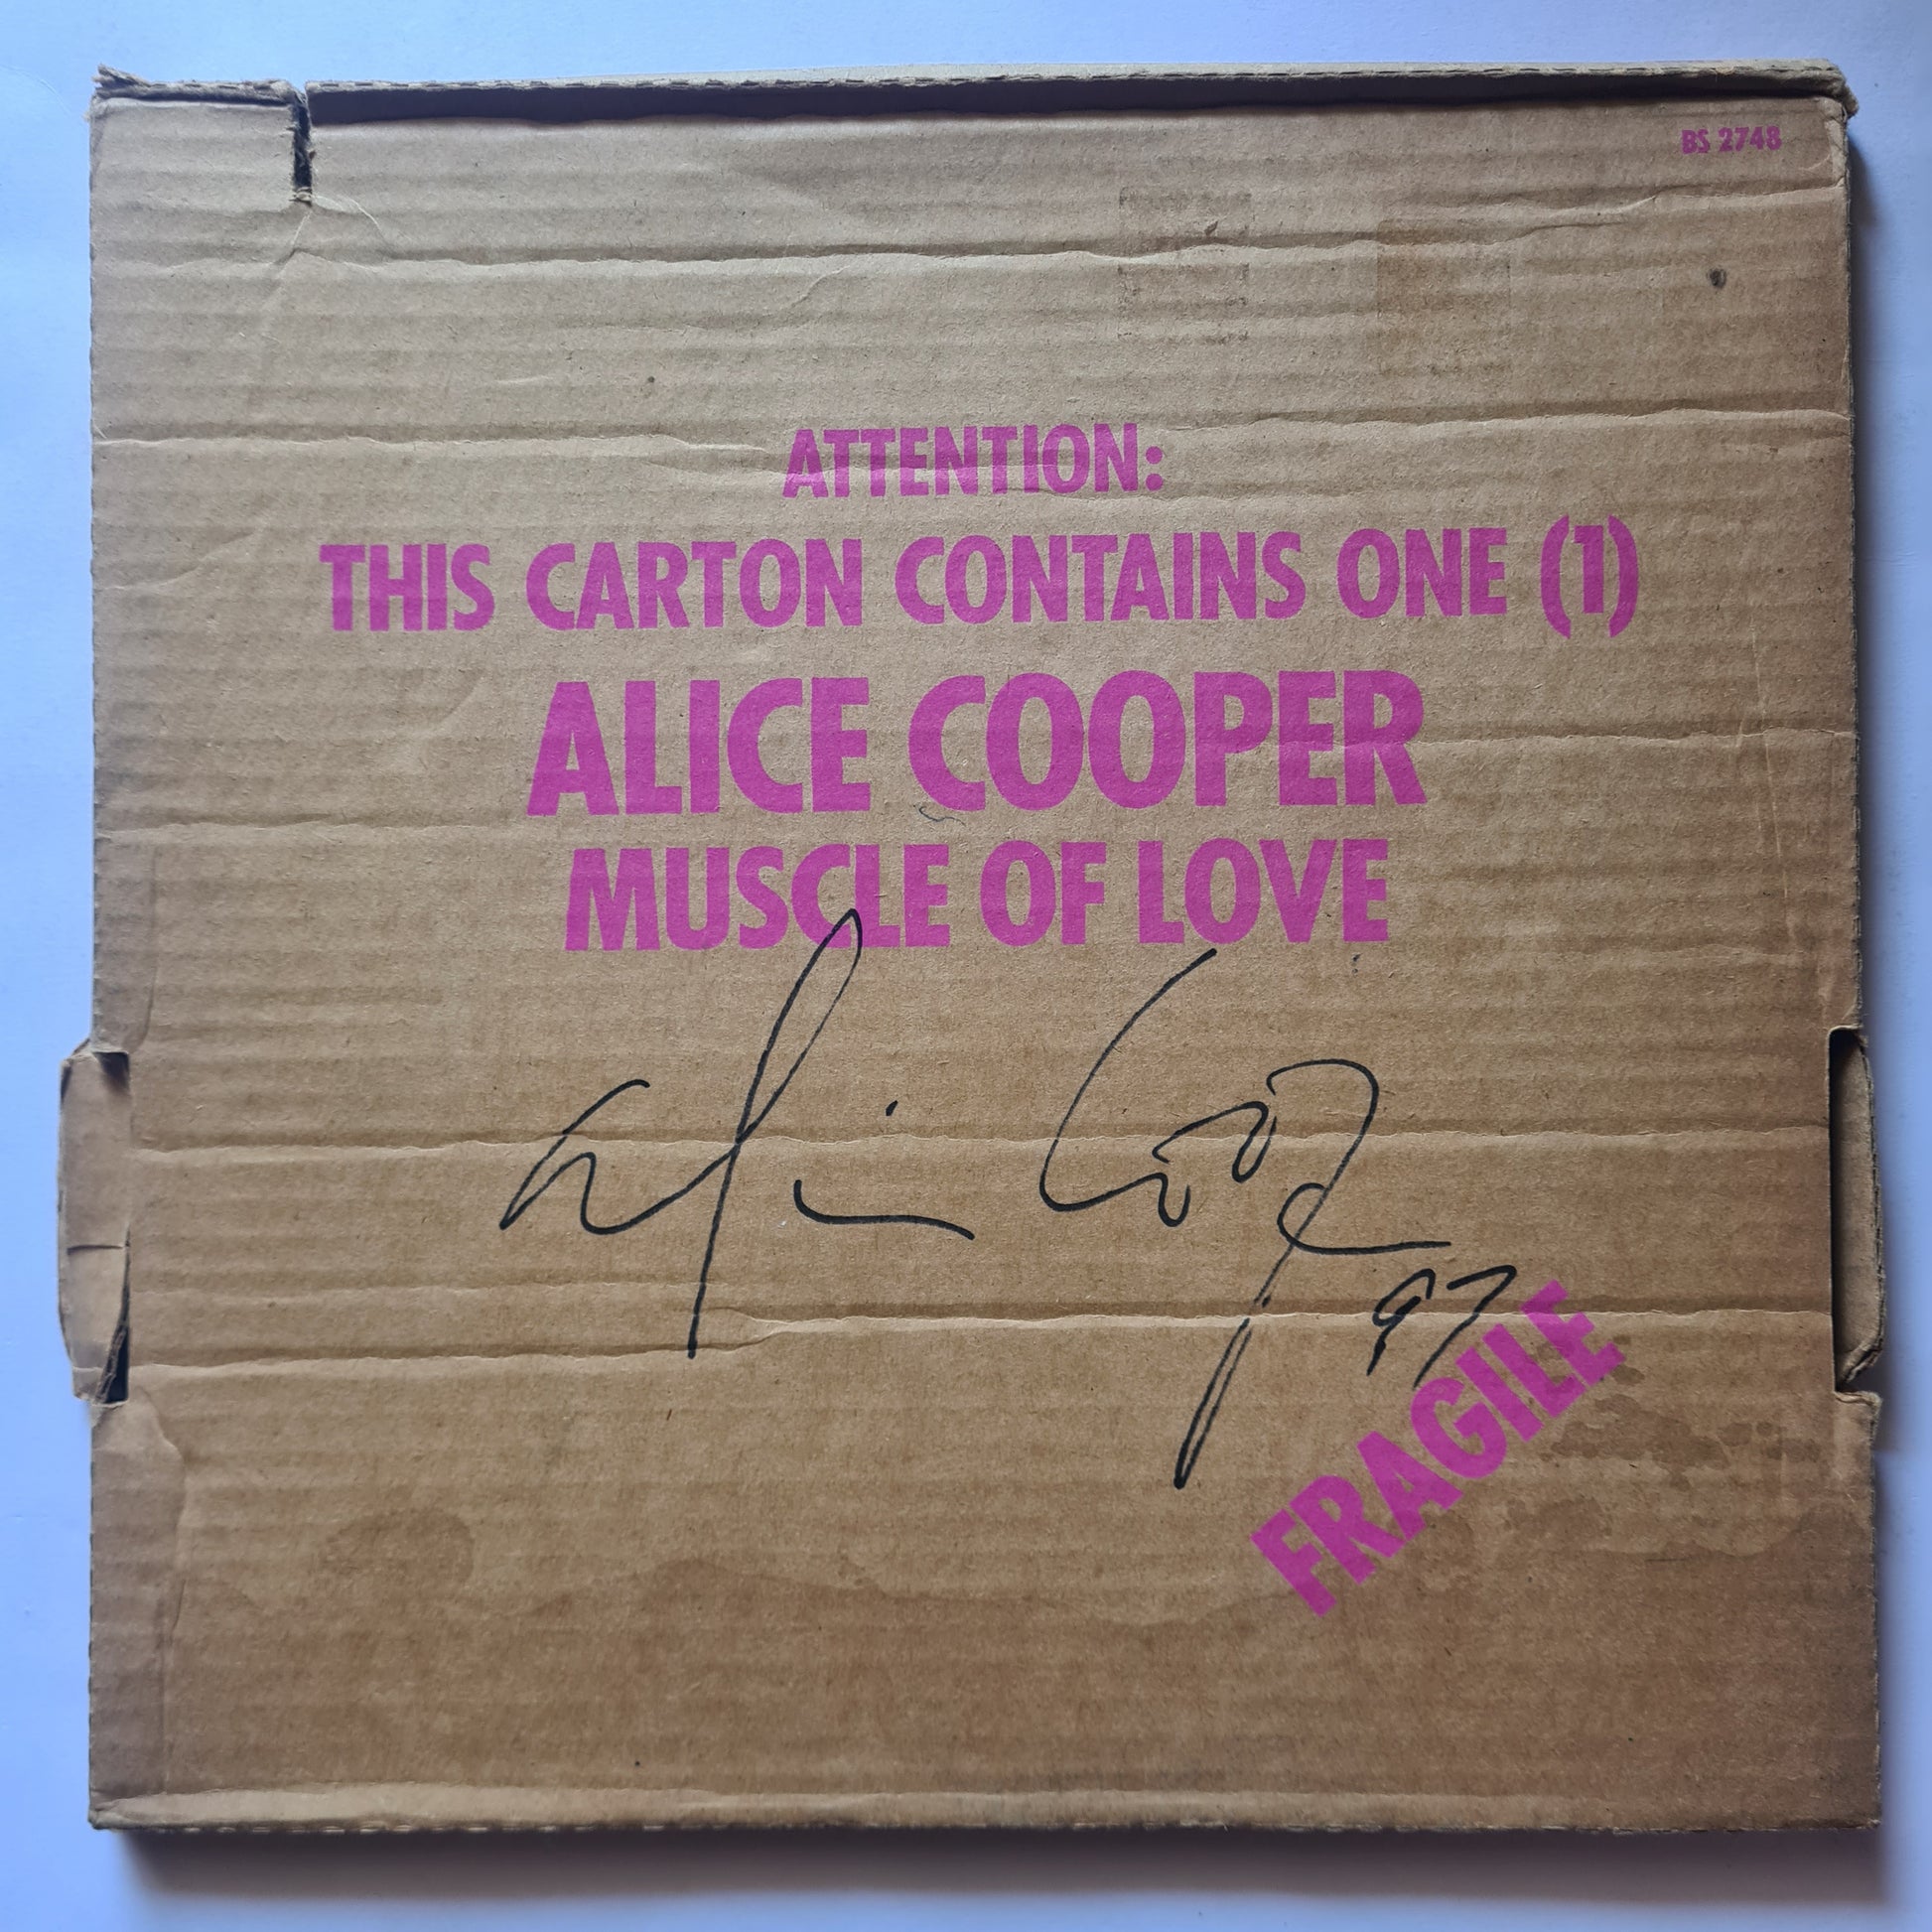 BS 2748
ATTENTION:
THIS CARTON CONTAINS ONE (1)
ALICE COOPER
MUSCLE OF LOVE
Alice Cooper
97
FRAGILE